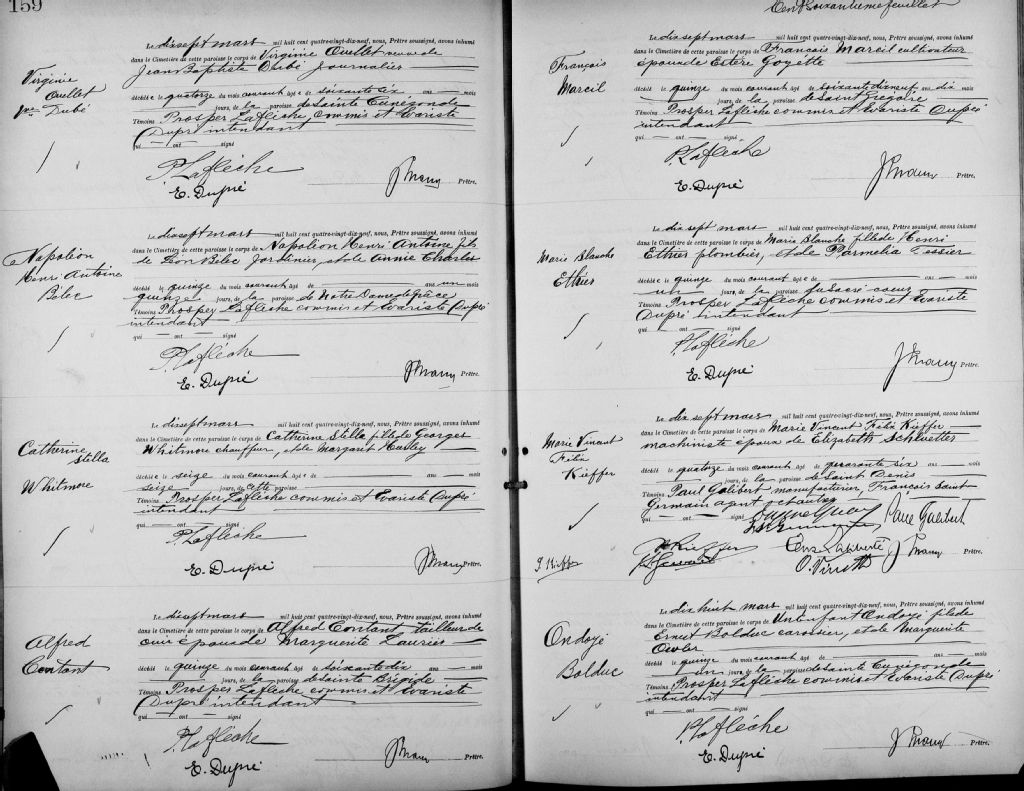 159
Virginie
Ouellet
Dubé
Le dix sept mars mil huit cent quatre-vingt-dix-neuf, nous, Prêtre soussigné, avons inhumé
dans le Cimetière de cette paroisse le corps de Virginie Ouellet veuve de
Jean Baptiste Dubé Journalier
décédée le quatorze du mois courant âgée de soixante six ans — mois
— jours, de la paroisse de Sainte Cunégonde
Témoins Prosper Laflèche commis et Evariste
Dupré intendant
qui — ont — signé
P. Laflèche
E. Dupré
Prêtre.
Napoléon
Henri Antoine
Bélec
Le dix sept mars mil huit cent quatre-vingt-dix-neuf, nous, Prêtre soussigné, avons inhumé
dans le Cimetière de cette paroisse le corps de Napoléon Henri Antoine fils
de Léon Bélec Jardinier, et de Annie Charles
décédé le quinze du mois courant âgé de — ans un mois
quinze jours, de la paroisse de Notre Dame de Grâce
Témoins Prosper Laflèche commis et Evariste Dupré
intendant
qui — ont — signé
P. Laflèche
E. Dupré
Prêtre.
Catherine
Stella
Whitmore
Le dix sept mars mil huit cent quatre-vingt-dix-neuf, nous, Prêtre soussigné, avons inhumé
dans le Cimetière de cette paroisse le corps de Catherine Stella fille de Georges
Whitmore chauffeur, et de Margaret Hurley
décédée le seize du mois courant âgée de — ans — mois
seize jours, de cette paroisse
Témoins Prosper Laflèche commis et Evariste Dupré
intendant
qui — ont — signé
P. Laflèche
E. Dupré
Prêtre.
Alfred
Contant
Le dix sept mars mil huit cent quatre-vingt-dix-neuf, nous, Prêtre soussigné, avons inhumé
dans le Cimetière de cette paroisse le corps de Alfred Contant tailleur de
cuir époux de Marguerite Laurier
décédé le quinze du mois courant âgé de soixante dix ans — mois
— jours, de la paroisse de Sainte Brigide
Témoins Prosper Laflèche commis et Evariste
Dupré intendant
qui — ont — signé
P. Laflèche
E. Dupré
Prêtre.
Cent soixantième feuillet
François
Mareil
Le dix sept mars mil huit cent quatre-vingt-dix-neuf, nous, Prêtre soussigné, avons inhumé
dans le Cimetière de cette paroisse le corps de François Mareil cultivateur
époux de Goyette
décédé le quinze du mois courant âgé de soixante dix neuf ans dix mois
— jours, de la paroisse de Saint Grégoire
Témoins Prosper Laflèche commis et Evariste Dupré
intendant
qui — ont — signé
P. Laflèche
E. Dupré
Prêtre.
Marie Blanche
Ethier
Le dix sept mars mil huit cent quatre-vingt-dix-neuf, nous, Prêtre soussigné, avons inhumé
dans le Cimetière de cette paroisse le corps de Marie Blanche fille de Henri
Ethier plombier, et de Parmelia Tessier
décédée le quinze du mois courant âgée de — ans — mois
un jours, de la paroisse du Sacré coeur
Témoins Prosper Laflèche commis et Evariste
Dupré intendant
qui — ont — signé
P. Laflèche
E. Dupré
Prêtre.
Marie Vincent
Félix
Kieffer
Le dix sept mars mil huit cent quatre-vingt-dix-neuf, nous, Prêtre soussigné, avons inhumé
dans le Cimetière de cette paroisse le corps de Marie Vincent Félix Kieffer
machiniste époux de Elizabeth
décédé le quatorze du mois courant âgé de quarante six ans — mois
— jours, de la paroisse de Saint Denis
Témoins Paul Galibert manufacturier, François Saint
Germain agent et autres
qui — ont — signé
Paul Galibert
Kieffer
Prêtre.
Ondoyé
Bolduc
Le dix huit mars mil huit cent quatre-vingt-dix-neuf, nous, Prêtre soussigné, avons inhumé
dans le Cimetière de cette paroisse le corps de Un enfant Ondoyé fils de
Ernest Bolduc carossier, et de Marguerite
décédé le quinze du mois courant âgé de — ans — mois
un jours, de la paroisse de Sainte Cunégonde
Témoins Prosper Laflèche commis et Evariste Dupré
intendant
qui — ont — signé
P. Laflèche
E. Dupré
Prêtre.